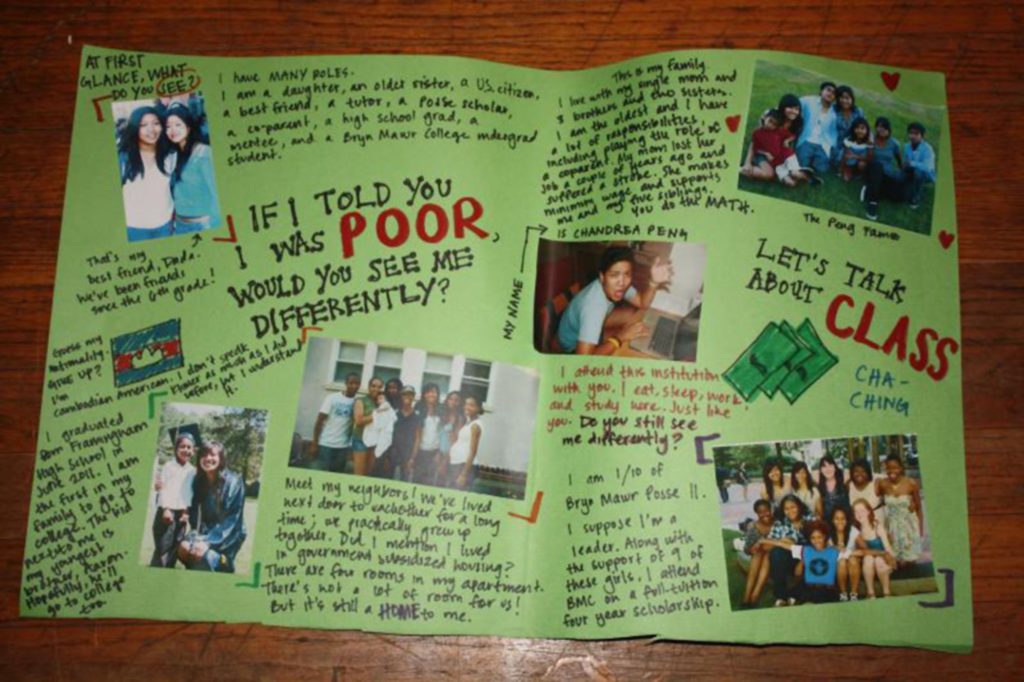 AT FIRST
GLANCE, WHAT
DO YOU SEE?
I have MANY ROLES.
I am a daughter, an older sister, a U.S. citizen,
a best friend, a tutor, a Posse scholar,
a co-parent, a high school grad, a
mentee, and a Bryn Mawr College undergrad
student.
That's my
best friend, Dada.
We've been friends
since the 6th grade!
IF I TOLD YOU
I WAS POOR,
WOULD YOU SEE ME
DIFFERENTLY?
Guess my
nationality.
GIVE UP?
I'm
Cambodian American. I don't speak
Khmer as much as I did
before, but I understand
it.
I graduated
from Framingham
High School in
June 2011. I am
the first in my
family to go to
college. The kid
next to me is
my youngest
brother, Karon.
Hopefully, he'll
go to college
too.
Meet my neighbors! We've lived
next door to eachother for a long
time; we practically grew up
together. Did I mention I lived
in government subsidized housing?
There are four rooms in my apartment.
There's not a lot of room for us!
But it's still a HOME to me.
This is my family.
I live with my single mom and
3 brothers and two sisters.
I am the oldest and I have
a lot of responsibilities,
including playing the role of
a coparent. My mom lost her
job a couple of years ago and
suffered a stroke. She makes
minimum wage and supports
me and my five siblings.
You do the MATH.
The Peng Fam
MY NAME
IS CHANDREA PENG
LET'S TALK
ABOUT CLASS
CHA-
CHING
I attend this institution
with you. I eat, sleep, work
and study here. Just like
you. Do you still see
me differently?
I am 1/10 of
Bryn Mawr Posse 11.
I suppose I'm a
leader. Along with
the support of 9 of
these girls, I attend
BMC on a full-tuition
four year scholarship.